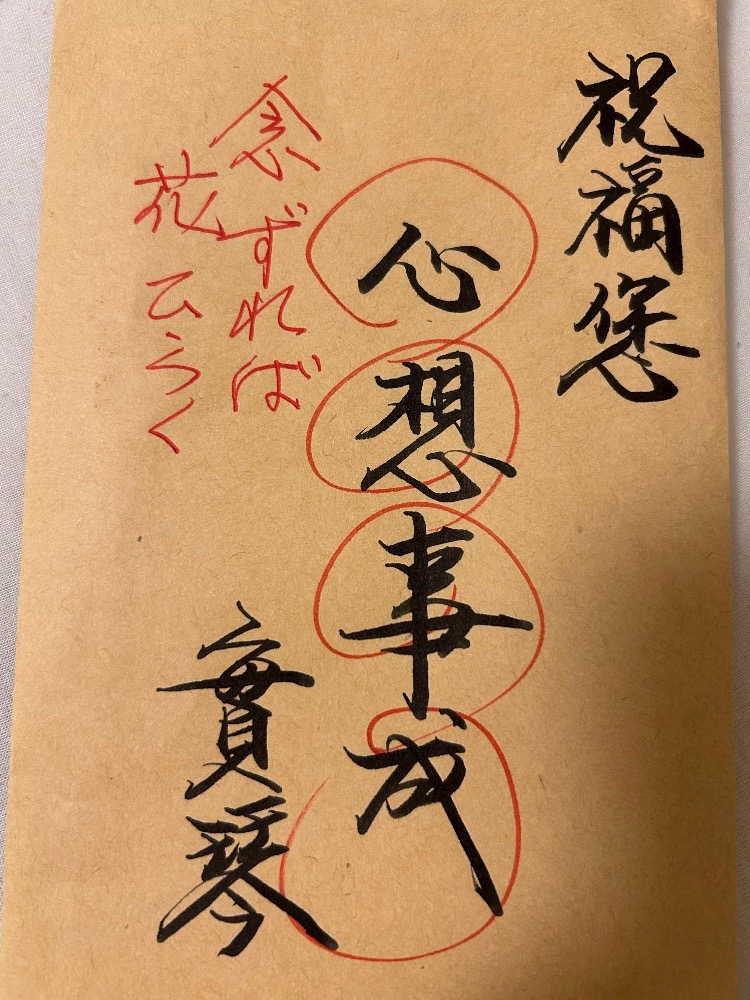 祝福您
心想事成
念ずれば
花ひらく
實琴